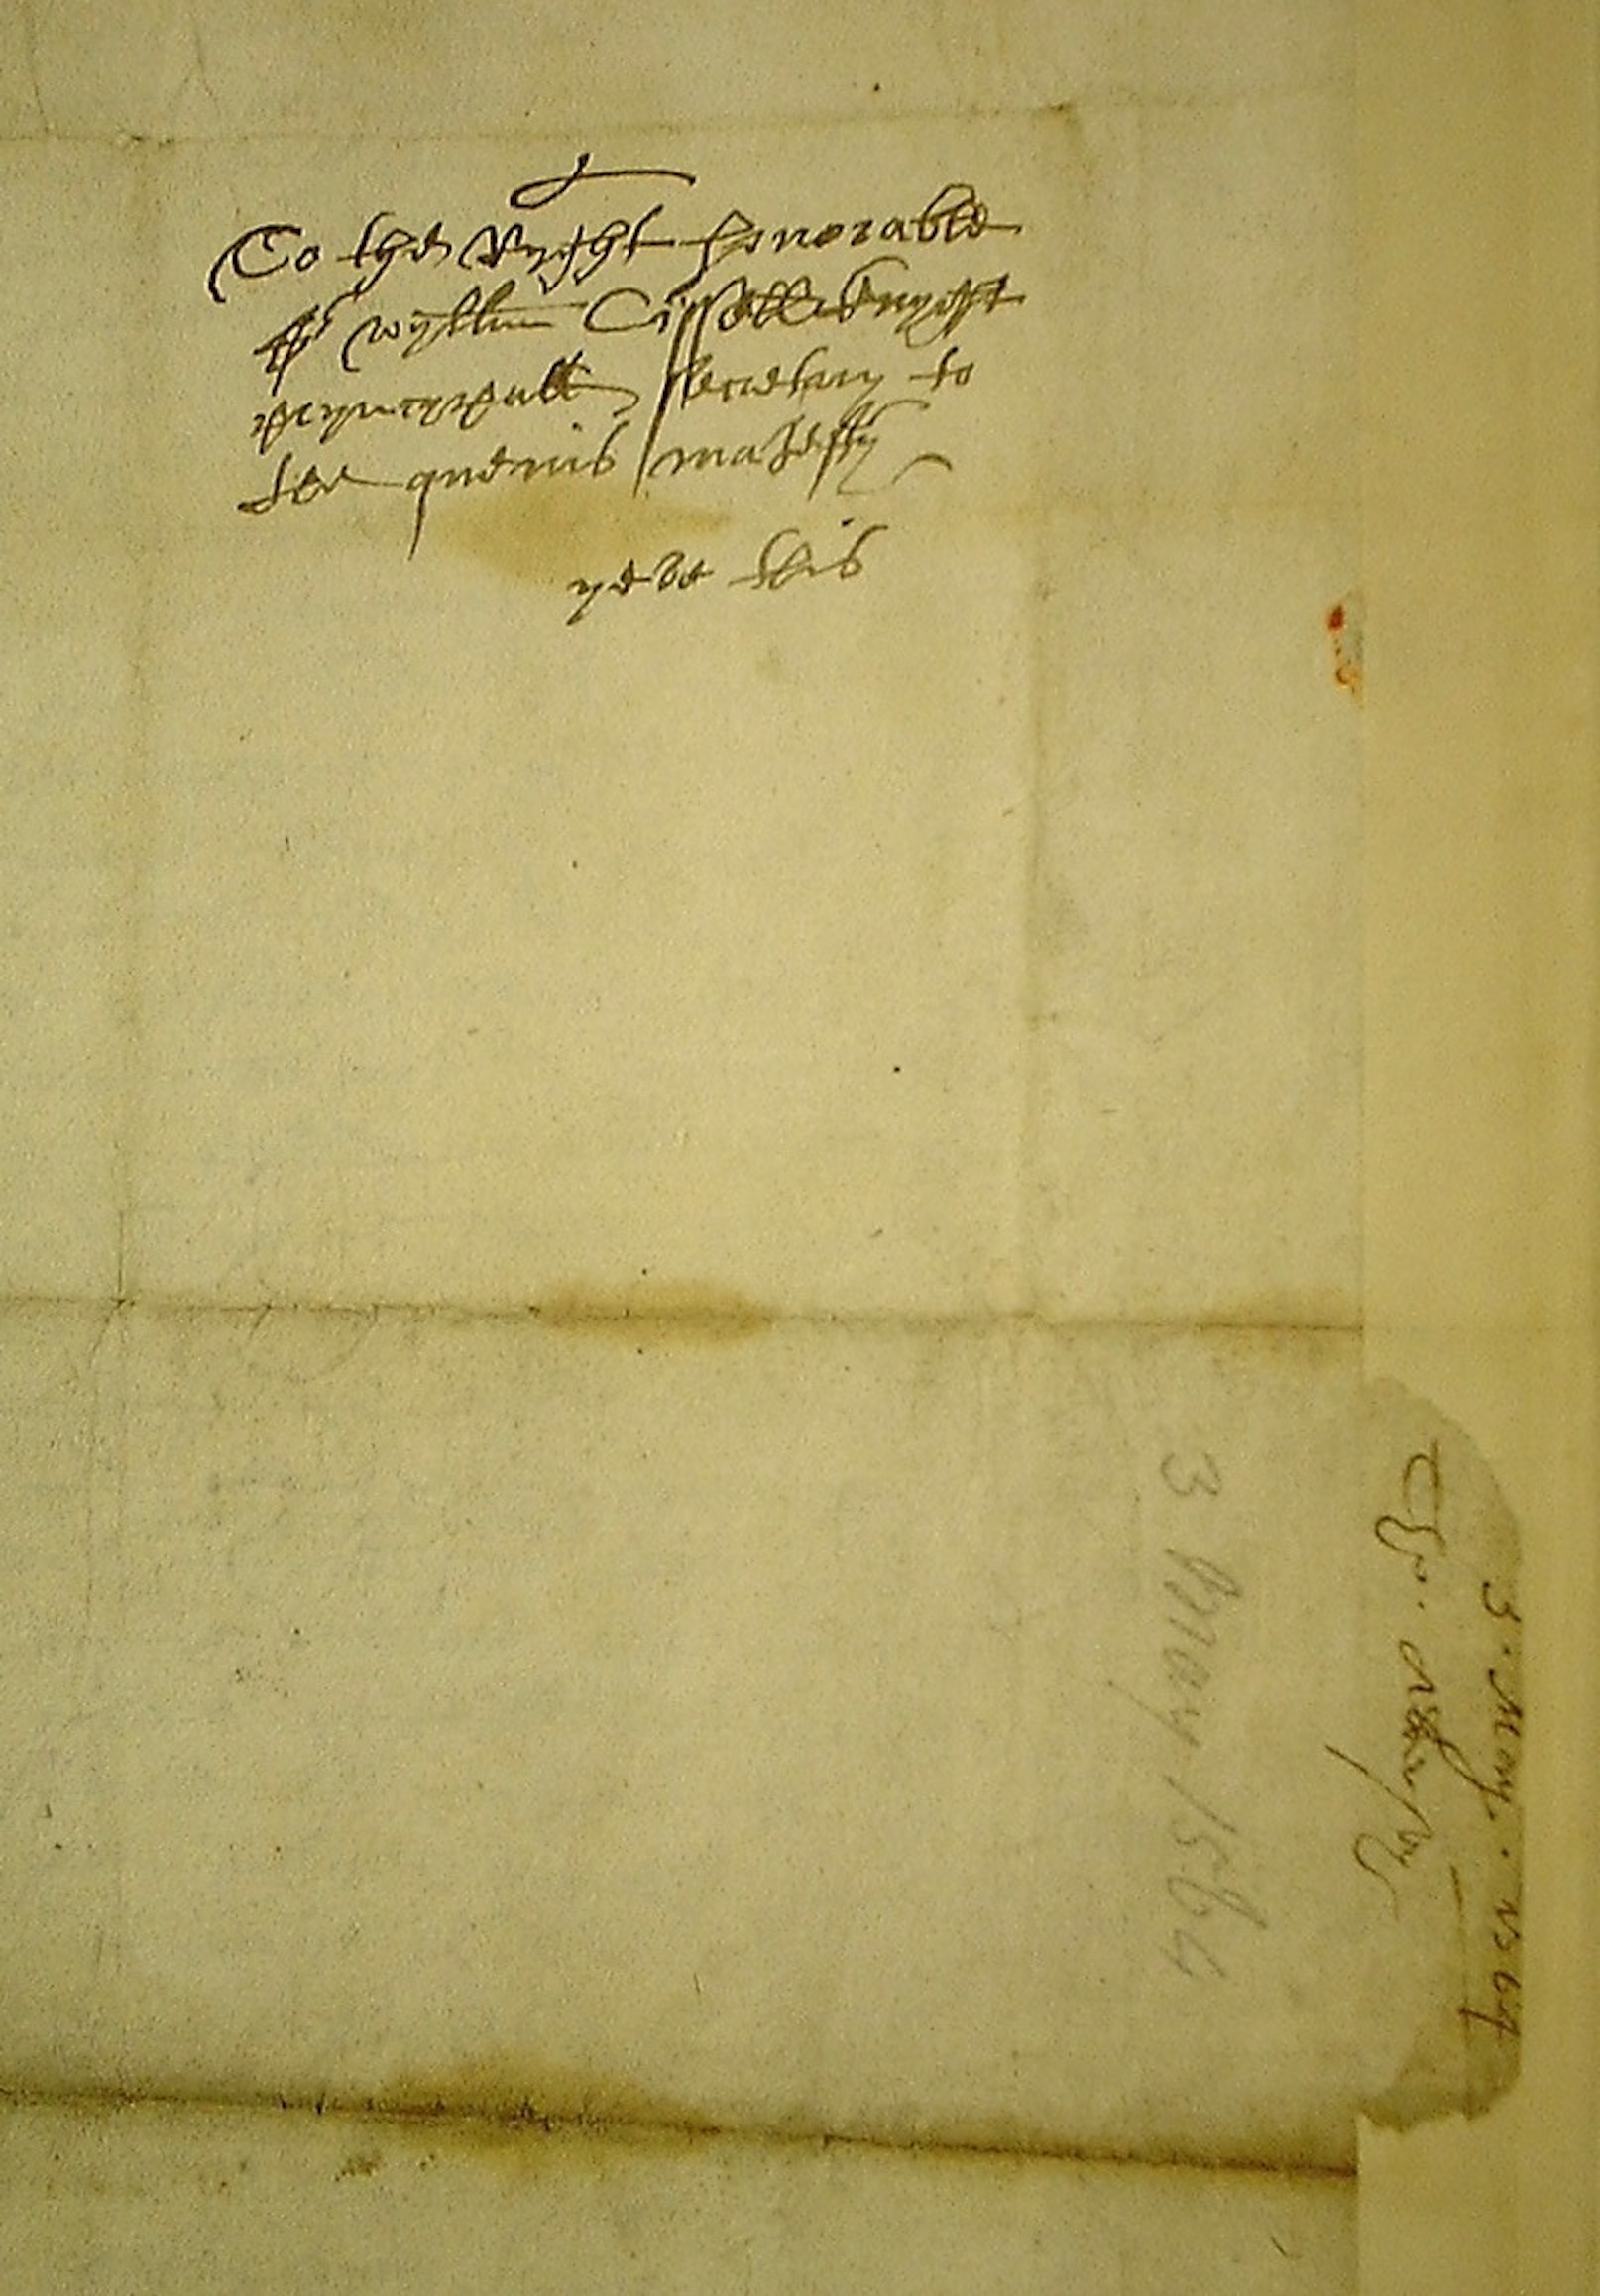 To the Ryght honorable
Sr wyllm Cissell knyght
pryncypall Secretary to
the quenis maJesty
yeve this
3 May 1564
3. May. 1564